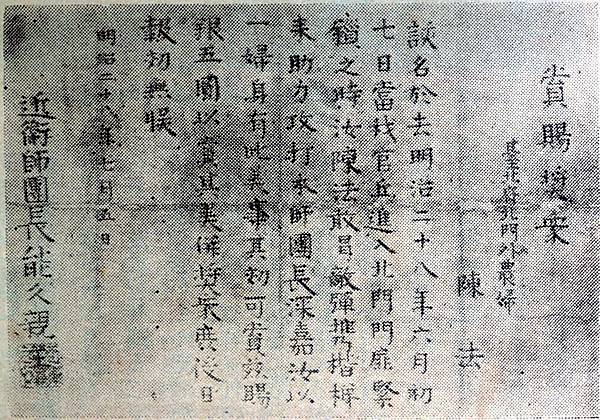 賞賜獎案
臺北府北門外農婦
陳法
該名於去明治二十八年六月初
七日當我官兵進入北門門扉緊
鎖之時汝陳法敢冒敵彈携楷梯
來助力攻打本師團長深嘉汝以
一婦身有此美事其功可賞茲賜
銀五圓以賞其美併獎眾庶後日
報無誤
明治二十八年七月五日
近衛師團長能久親王